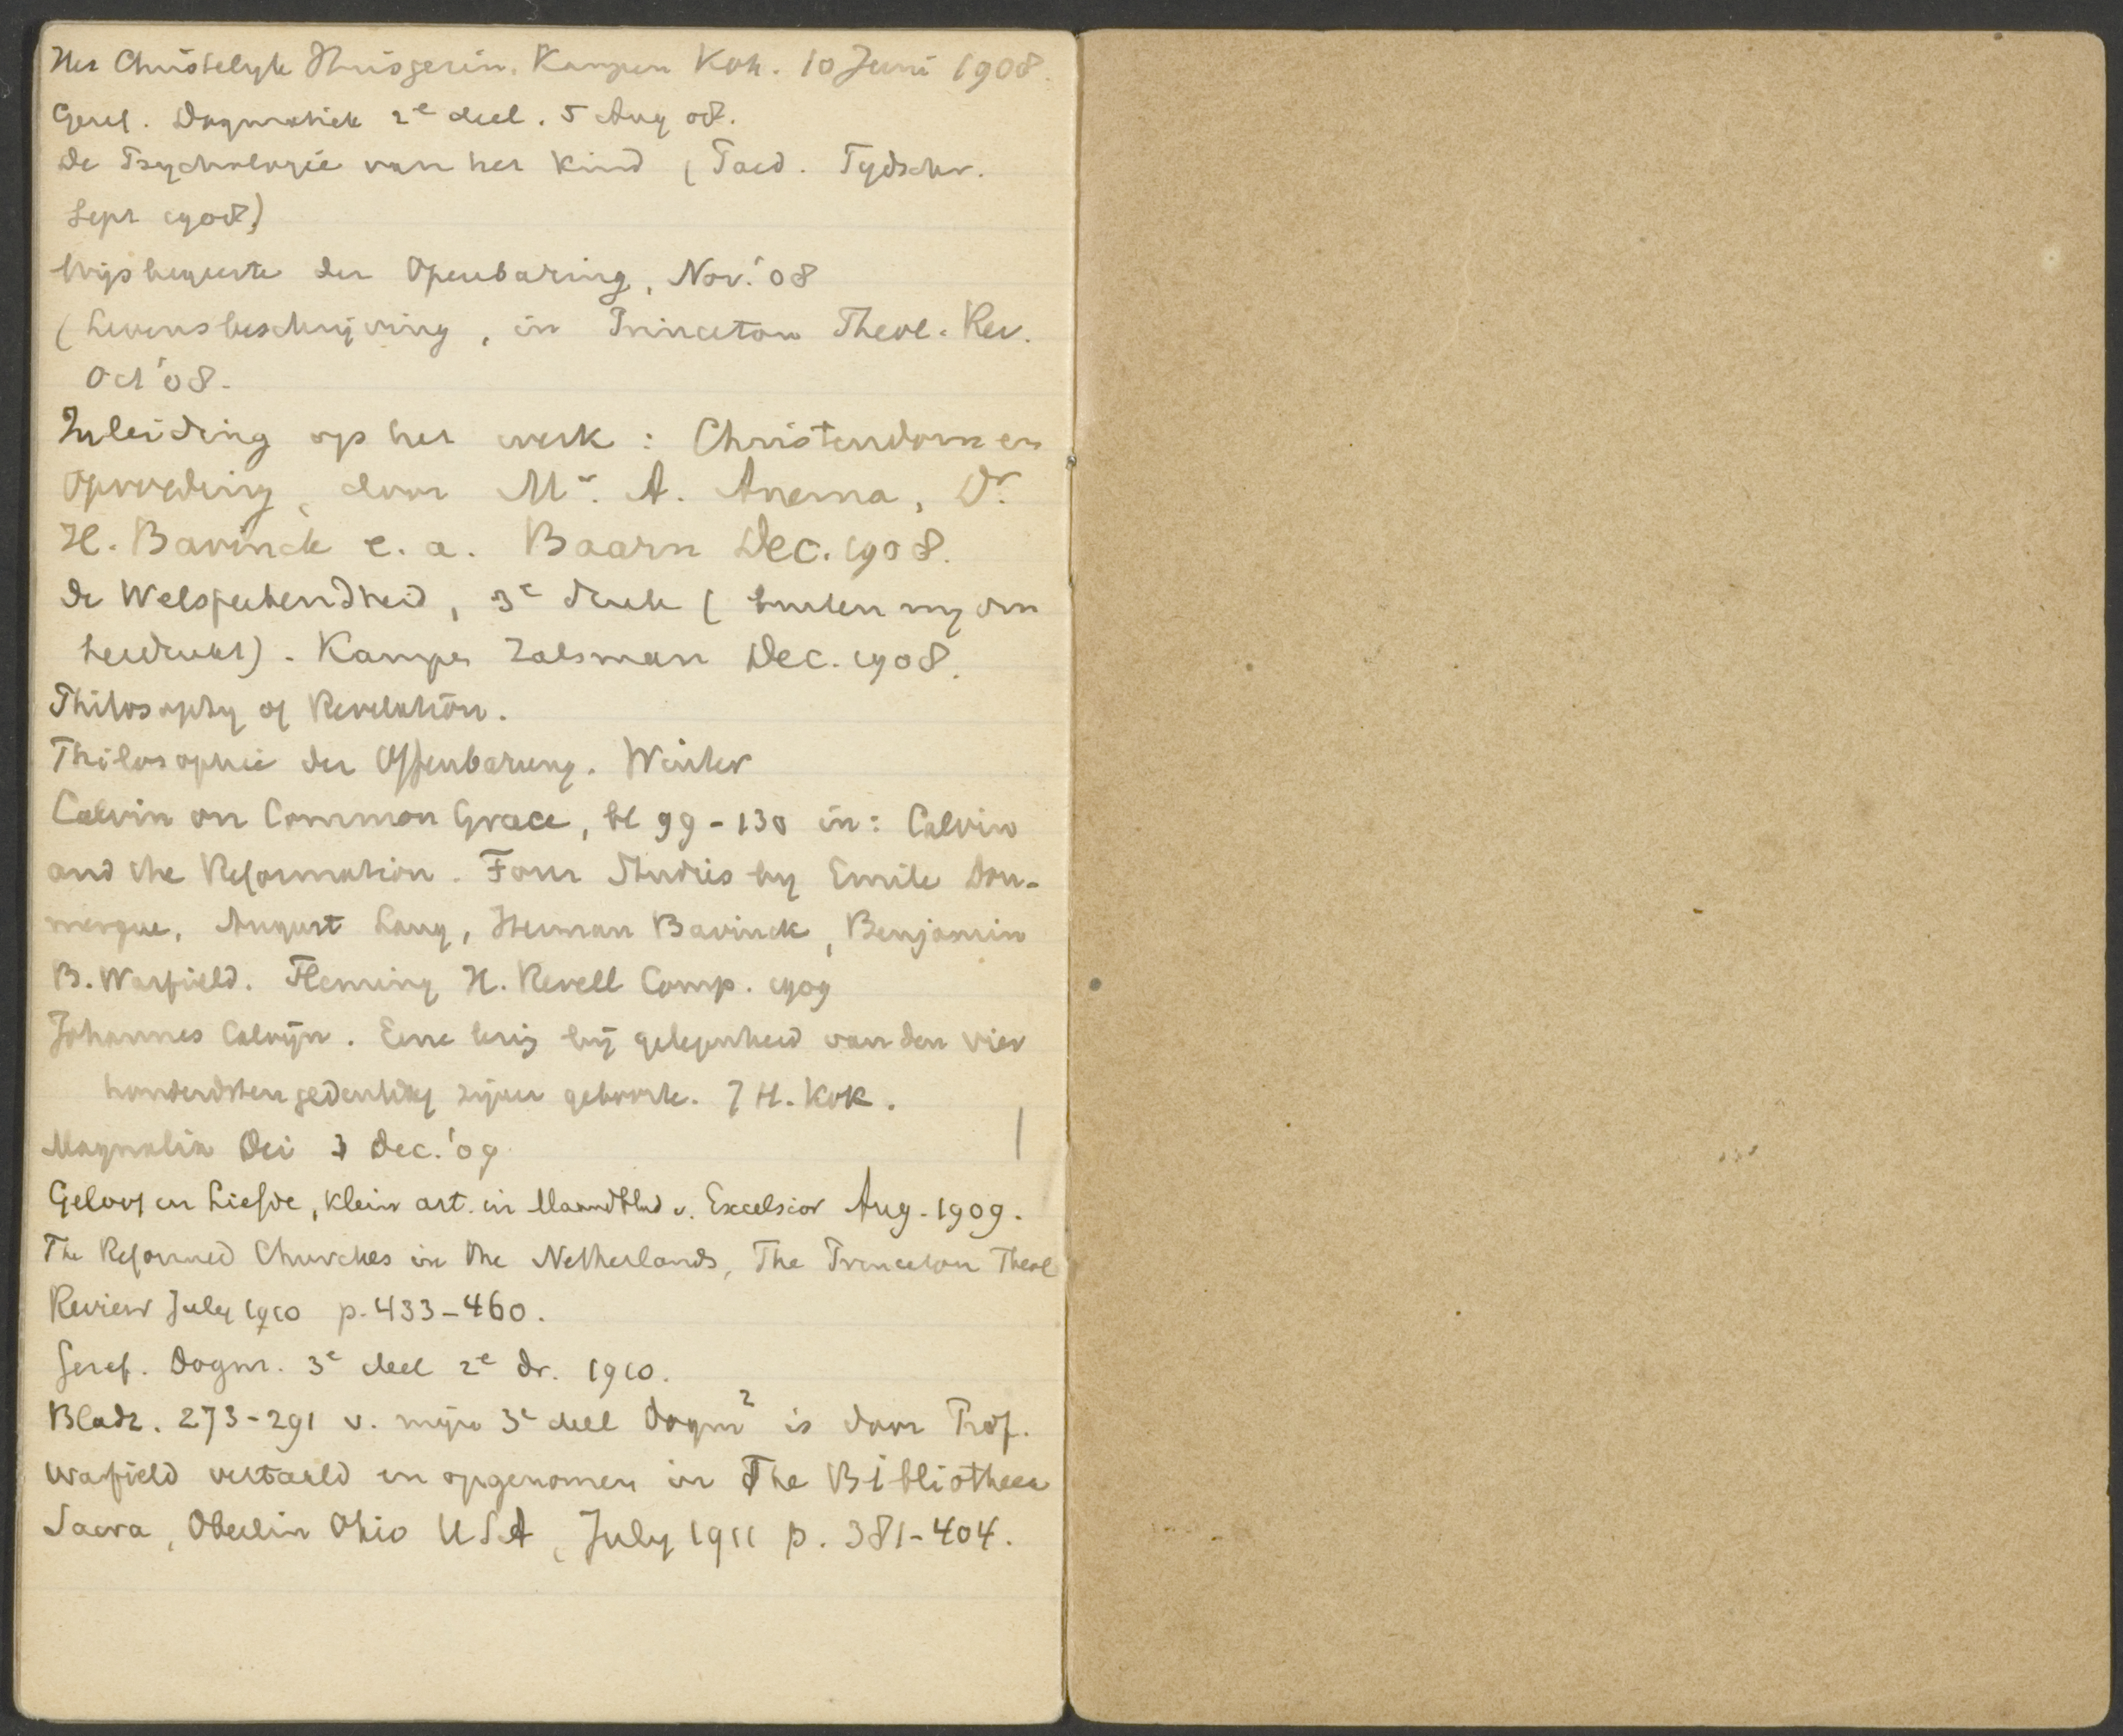 Het Christelyk Huisgezin. Kampen Kok. 10 Juni 1908.
Geref. Dogmatiek 2e deel. 5 Aug 08.
De Psychologie van het Kind (Paed. Tydschr.
Sept 1908)
Wijsbegeerte der Openbaring, Nov. '08
(Levensbeschrijving, in Princeton Theol. Rev.
Oct '08.
Inleiding op het werk: Christendom en
Opvoeding, door Mr. A. Anema, Dr.
H. Bavinck e. a. Baarn Dec. 1908.
De Welsprekendheid, 3e druk (buiten my om
herdrukt). Kampen Zalsman Dec. 1908.
Philosophy of Revelation.
Philosophie der Offenbarung. Winter
Calvin on Common Grace, bl 99-130 in: Calvin
and the Reformation. Four Studies by Emile Dou-
mergue, August Lang, Herman Bavinck, Benjamin
B. Warfield. Fleming H. Revell Comp. 1909
Johannes Calvijn. Eene lezing bij gelegenheid van den vier
honderdsten gedenkdag zijner geboorte. J H. Kok.
Magnalia Dei 3 Dec. '09
Geloof en Liefde, klein art. in Maandblad v. Excelsior Aug. 1909.
The Reformed Churches in the Netherlands, The Princeton Theol
Review July 1910 p. 433-460.
Geref. Dogm. 3e deel 2e dr. 1910.
Bladz. 273-291 v. mijn 3e deel Dogm2 is door Prof.
Warfield vertaald en opgenomen in The Bibliotheca
Sacra, Oberlin Ohio USA, July 1911 p. 381-404.